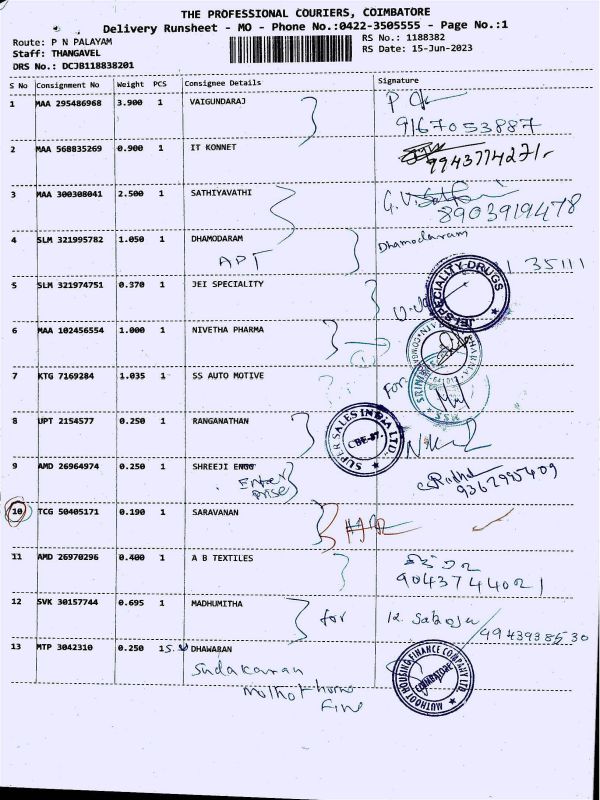 THE PROFESSIONAL COURIERS, COIMBATORE
Delivery Runsheet - MO - Phone No.:0422-3505555 - Page No.:1
Route: P N PALAYAM
RS No.: 1188382
Staff: THANGAVEL
RS Date: 15-Jun-2023
DRS No.: DCJB118838201
S No Consignment No Weight PCS Consignee Details Signature
1 MAA 295486968 3.900 1 VAIGUNDARAJ
9167053887
2 MAA 568835269 0.900 1 IT KONNET
9943774271
3 MAA 300308041 2.500 1 SATHIYAVATHI
8903919478
4 SLM 321995782 1.050 1 DHAMODARAM Dhamodaram
APT
35111
5 SLM 321974751 0.370 1 JEI SPECIALITY
JEI SPECIALITY DRUGS
6 MAA 102456554 1.000 1 NIVETHA PHARMA
7 KTG 7169284 1.035 1 SS AUTO MOTIVE
For
8 UPT 2154577 0.250 1 RANGANATHAN
SUPER SALES INDIA LTD.
CBE-37.
9 AMD 26964974 0.250 1 SHREEJI ENGG
Enter
prise
10 TCG 50405171 0.190 1 SARAVANAN
11 AMD 26970296 0.400 1 A B TEXTILES
9043744021
12 SVK 30157744 0.695 1 MADHUMITHA for
13 MTP 3042310 0.250 1 DHAWARAN
MUTHOOT HOUSING FINANCE COMPANY LTD.
COIMBATORE